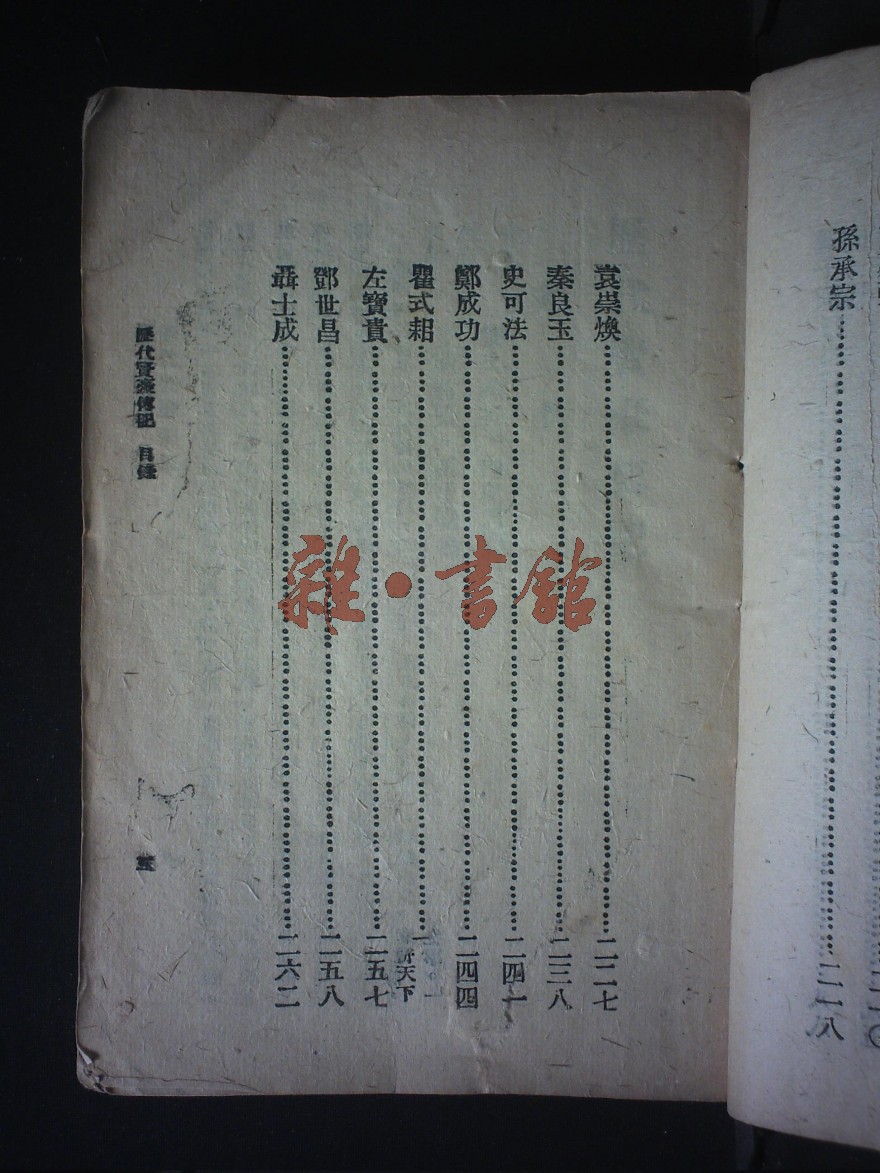 孫承宗…二一八
袁崇煥…二二七
秦良玉…二三八
史可法…二四一
鄭成功…二四四
瞿式耜…
左寶貴…二五七
鄧世昌…二五八
聶士成…二六二
目錄
雜·書館